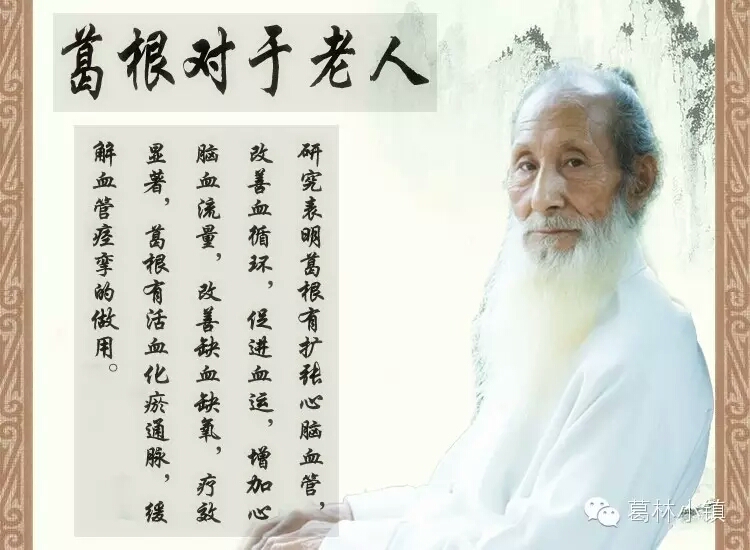 葛根对于老人
研究表明葛根有扩张心脑血管，
改善血循环，促进血运，增加心
脑血流量，改善缺血缺氧，疗效
显著，葛根有活血化瘀通脉，缓
解血管痉挛的做用。
葛林小镇